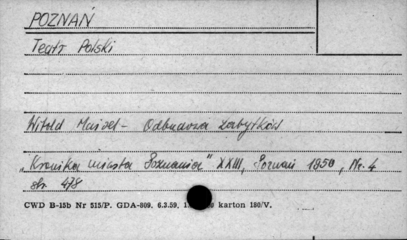 POZNAŃ
Teatr Polski
Witold Maisel - Odbudowa zabytków
„Kronika miasta Poznania" XXIII, Poznań 1950, Nr. 4
str. 478
CWD B-15b Nr 515/P. GDA-809. 6.3.59. karton 180/V.